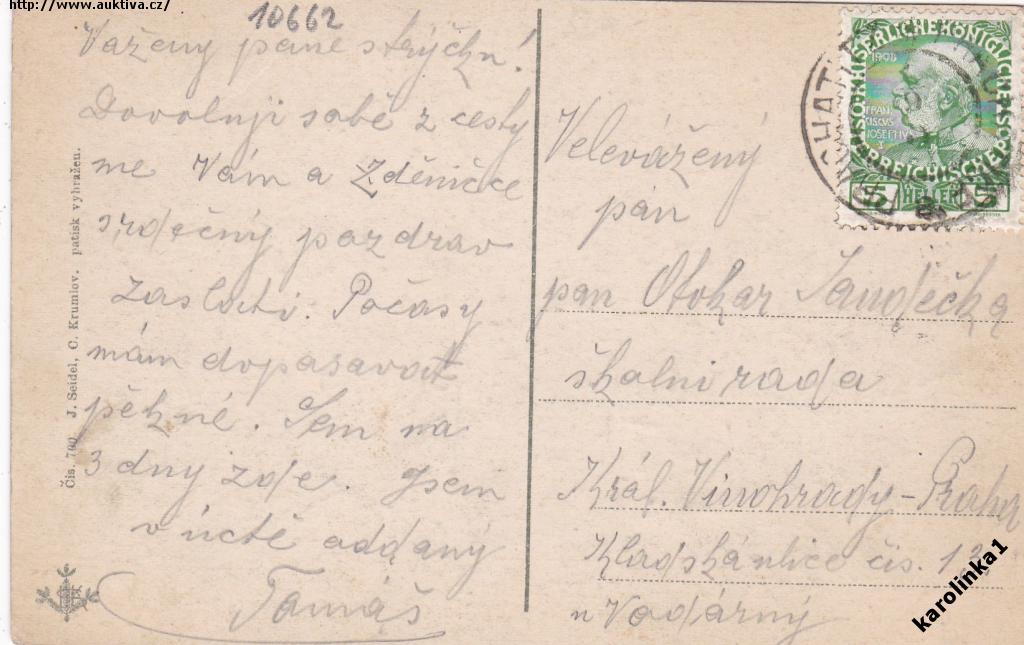 http://www.auktiva.cz/
10662
Vážený pane strýčku!
Dovoluji sobě z cesty
mé Vám a Zděničce
srdečný pozdrav
zaslati. Počasy
mám doposavat
pěkné. Sem na
3 dny zde. Jsem
v úctě oddaný
Tomáš
Čís. 760 J. Seidel, Č. Krumlov. patisk vyhražen.
KAISERLICHE KÖNIGLICHE
ÖSTERREICHISCHE POST
1908
FRAN
CISCUS
IOSEPH
I
5 HELLER 5
Velevážený
pán
pan Otokar
školní rada
Král. Vinohrady-Praha
čís.
u Vodárny
karolinka1